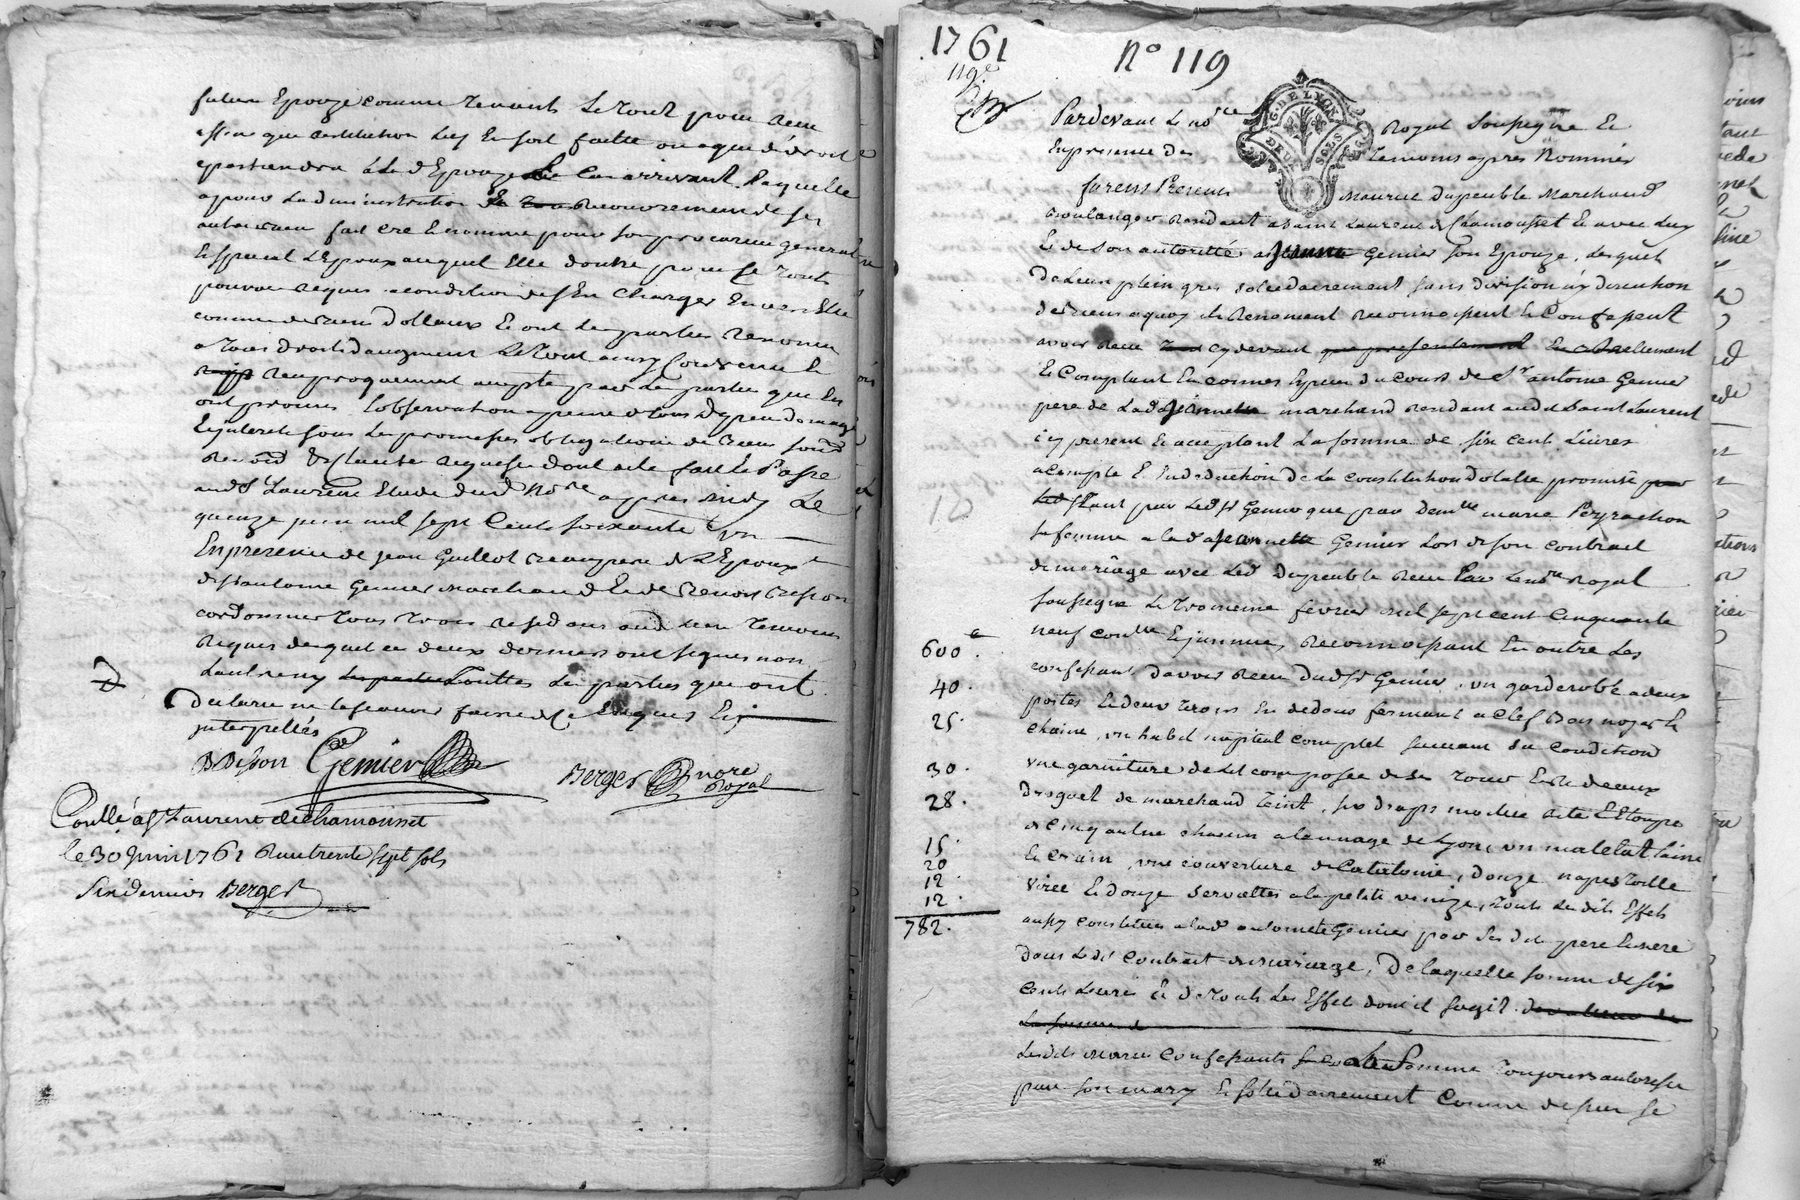 future Epouze comme Tenant Le Tout pour Reçu
affin que restitution luy En soit faitte ou a qui de droit
apartiendra a Lad Epouze Le Cas arrivant. Laquelle
a pour Ladministration Recouvrement de ses
autres fait crée Enomme pour son procureur general
Et special L'Epoux auquel Elle donne pour ce Tout
pouvoir requis a condition de s'En Charger Envers Elle
comme de biens Dottaux Et ont les parties Renoncé
a Tous droits d'augment Le Tout ainsy Convenu Et
Reciproquement accepté par Les parties que Les
ont promis L'observation a peine de tous depens domage
Et interets sous Les promesses obligations de Biens soumis
Renon Et Clauses Requises dont acte fait Et Passé
aud St Laurent Etude dud Nore apres midy Le
quinze juin mil sept Cents soixante Un
En presence de jean Guillot Beaupere de L'Epoux
de Sr antoine Genier Marchand Et de Benoit Bisson
cordonnier Tous Trois residans aud lieu Temoins
Requis lesquels deux derniers ont signés non
L'autre ny Touttes Les parties qui ont
Declaré ne le sçavoir faire de ce Enquis Et
interpellés
B Bisson Genier Berger nore
Royal
Conllé a St Laurent de chamousset
le 30 juin 1761 R quatrente sept sols
six deniers Berger
1761
119e
N° 119
G. DE LYON
DEUX SOLS
Pardevant Le nore Royal Soussigné Et
En presence des Temoins apres Nommés
furent Presents Maurice Dupeuble Marchand
Boulanger Residant a Saint Laurent de Chamousset Et avec luy
Et de son autorité Jeanne Genier son Epouze, Lesquels
De Leur plein gres solidairement sans division ny discution
de Biens a quoy ils Renoncent Reconnoissent Et Confessent
avoir Reçu cy devant que presentement Et Reellement
Et Comptant En bonnes Especes du cours de Sr antoine Genier
pere de Lad Jeannette marchand Residant aud Saint Laurent
icy present Et acceptant La somme de six cents Livres
a compte Et En deduction de La constitution dotalle promise
tant par Led Sr Genier que par Demlle marie Peyrachon
sa femme a lad Jeannette Genier Lors de son contrat
de mariage avec Led Dupeuble Reçu Par Le nore Royal
soussigné Le Troisieme fevrier mil sept cent Cinquante
neuf conllé Et jnsinué, Reconnoissant En outre Les
confessants davoir Reçu Dud Sr Genier, un garderobbe a deux
portes Et deux tirois En dedans fermant a Clef Bois noyer Et
chaine, un habit nuptial complet suivant sa condition
une garniture de Lit composée de ses Tour Et Rideaux
Droguet de marchand Teint, six draps moitié rite Et Etoupe
de Cinq aulne chacun a Launage de Lyon, un matelat laine
Et Crain, une couverture de Catalonie, douze napes Toille
virée Et douze serviettes a la petite venize, Touts Lesdits Effets
aussy constitués a lad antoinette Genier par Sesdits pere Et mere
dans Ledit Contrat de mariage, De laquelle somme de six
Cents Livres Et de Touts Les Effets dont il sagit de valeur de
La somme de
Lesdits mariés Confessants La femme Toujours autorisée
par son mary Et solidairement Comme dessus se
600
40.
25.
30.
28.
15.
20
12.
12.
782.